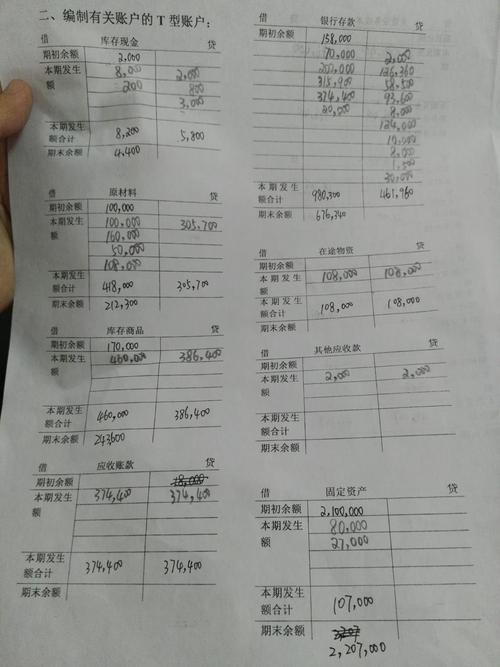 二、编制有关账户的 T 型账户：
借 库存现金 贷
期初余额 2,000
本期发生额 8,000 2,000
200 800
3,000
本期发生额合计 8,200 5,800
期末余额 4,400
借 原材料 贷
期初余额 100,000
本期发生额 100,000 305,700
160,000
50,000
108,000
本期发生额合计 418,000 305,700
期末余额 212,300
借 库存商品 贷
期初余额 170,000
本期发生额 460,000 386,400
本期发生额合计 460,000 386,400
期末余额 243600
借 应收账款 贷
期初余额 18,000
本期发生额 374,400 374,400
本期发生额合计 374,400 374,400
期末余额
借 银行存款 贷
期初余额 158,000
本期发生额 70,000 2,000
200,000 126,360
315,900 58,500
374,400 93,600
20,000 8,000
124,000
10,000
8,000
1,500
30,000
本期发生额合计 980,300 461,960
期末余额 676,340
借 在途物资 贷
期初余额
本期发生额 108,000 108,000
本期发生额合计 108,000 108,000
期末余额
借 其他应收款 贷
期初余额
本期发生额 2,000 2,000
本期发生额合计
期末余额
借 固定资产 贷
期初余额 2,100,000
本期发生额 80,000
27,000
本期发生额合计 107,000
期末余额
2,207,000